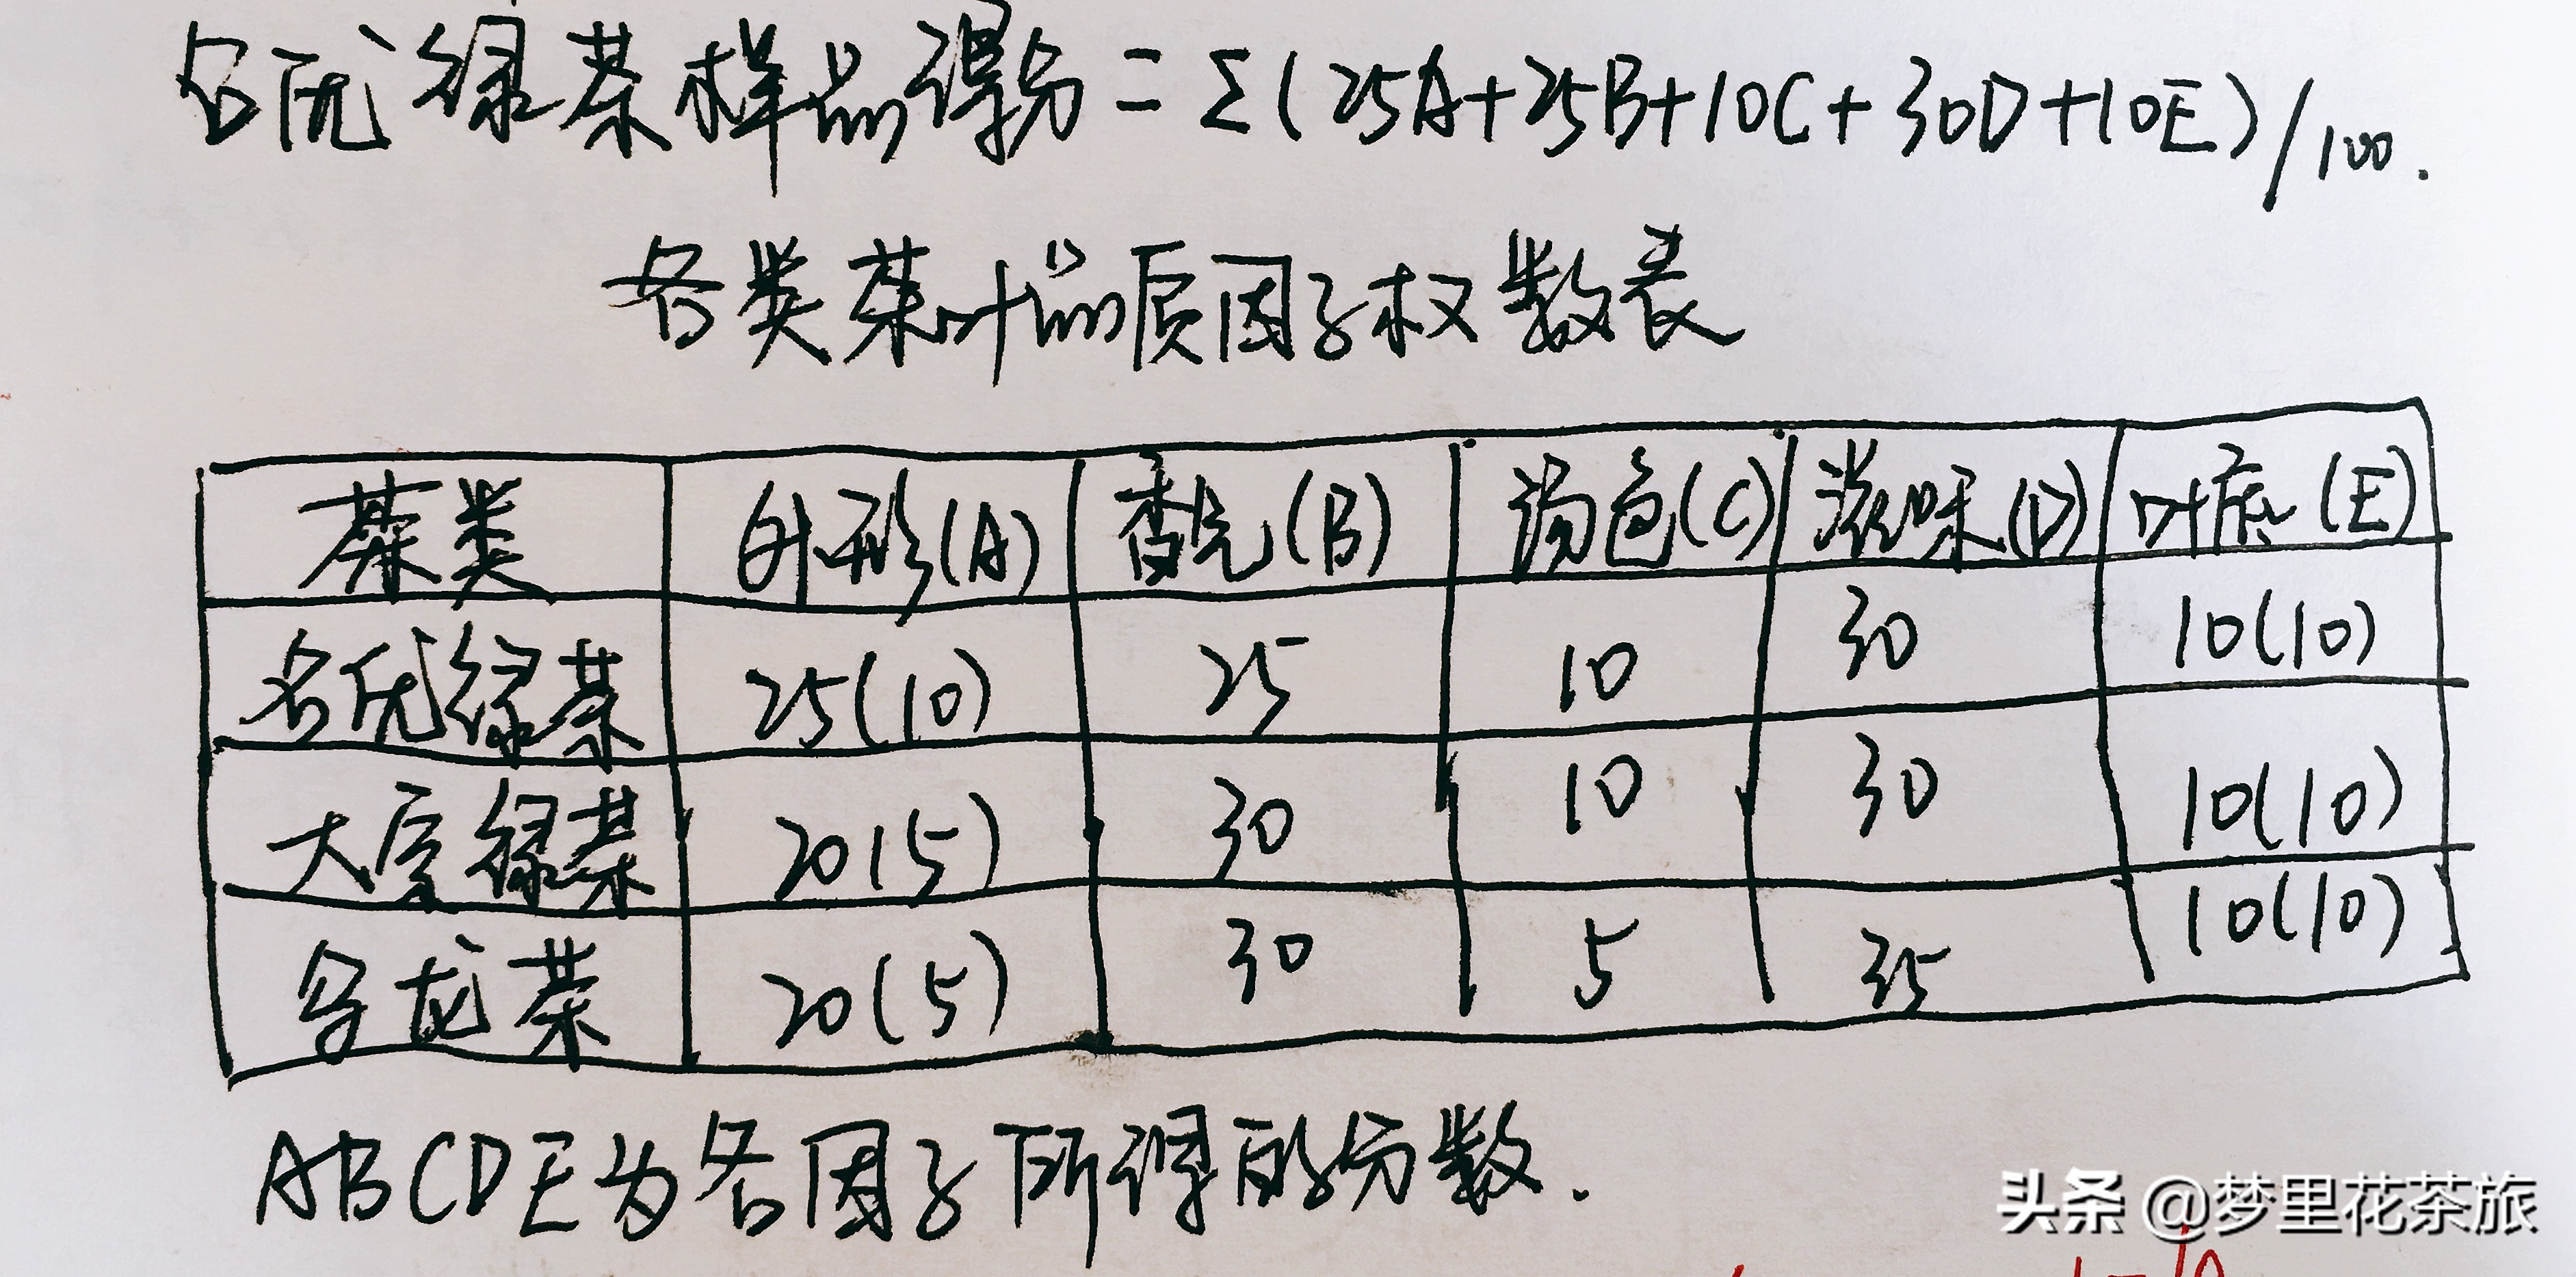 名优绿茶样品得分=Σ(25A+25B+10C+30D+10E)/100.
各类茶叶品质因子权数表
茶类 外形(A) 香气(B) 汤色(C) 滋味(D) 叶底(E)
名优绿茶 25(10) 25 10 30 10(10)
大宗绿茶 20(5) 30 10 30 10(10)
乌龙茶 20(5) 30 5 35 10(10)
ABCDE为各因子所得的分数.
头条 @梦里花茶旅